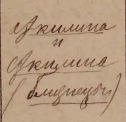 Акилина
и
Акилина
(близнецы)